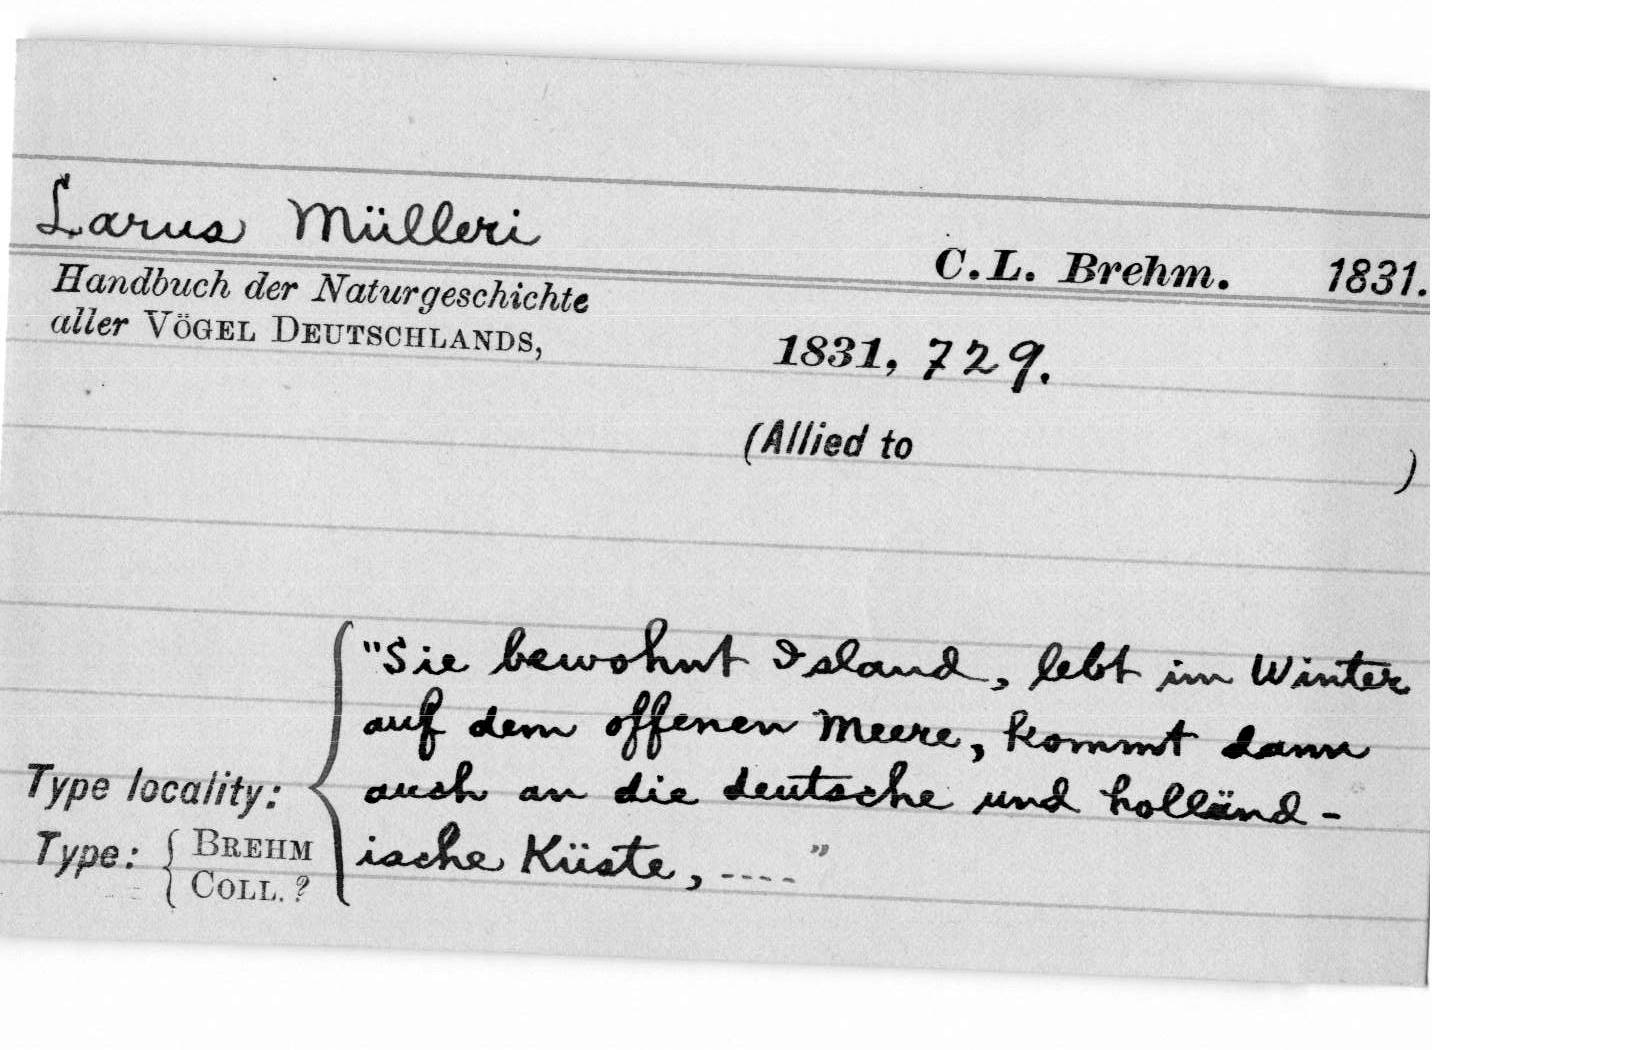 Larus Mülleri
C.L. Brehm. 1831.
Handbuch der Naturgeschichte
aller VÖGEL DEUTSCHLANDS,
1831, 729.
(Allied to )
"Sie bewohnt Island, lebt im Winter
auf dem offenen Meere, kommt dann
auch an die deutsche und holländ-
ische Küste, ...."
Type locality:
Type: { BREHM
COLL. ?